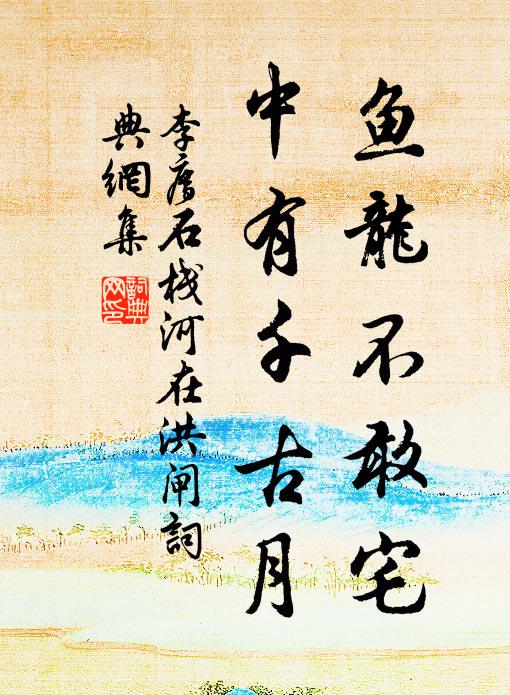 鱼龍不敢宅
中有千古月
李廌石栈河在洪闸詞
典網集
詞典
网印